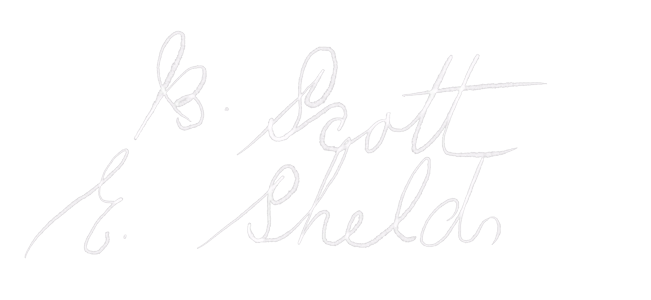 B. Scott
E. Shelds